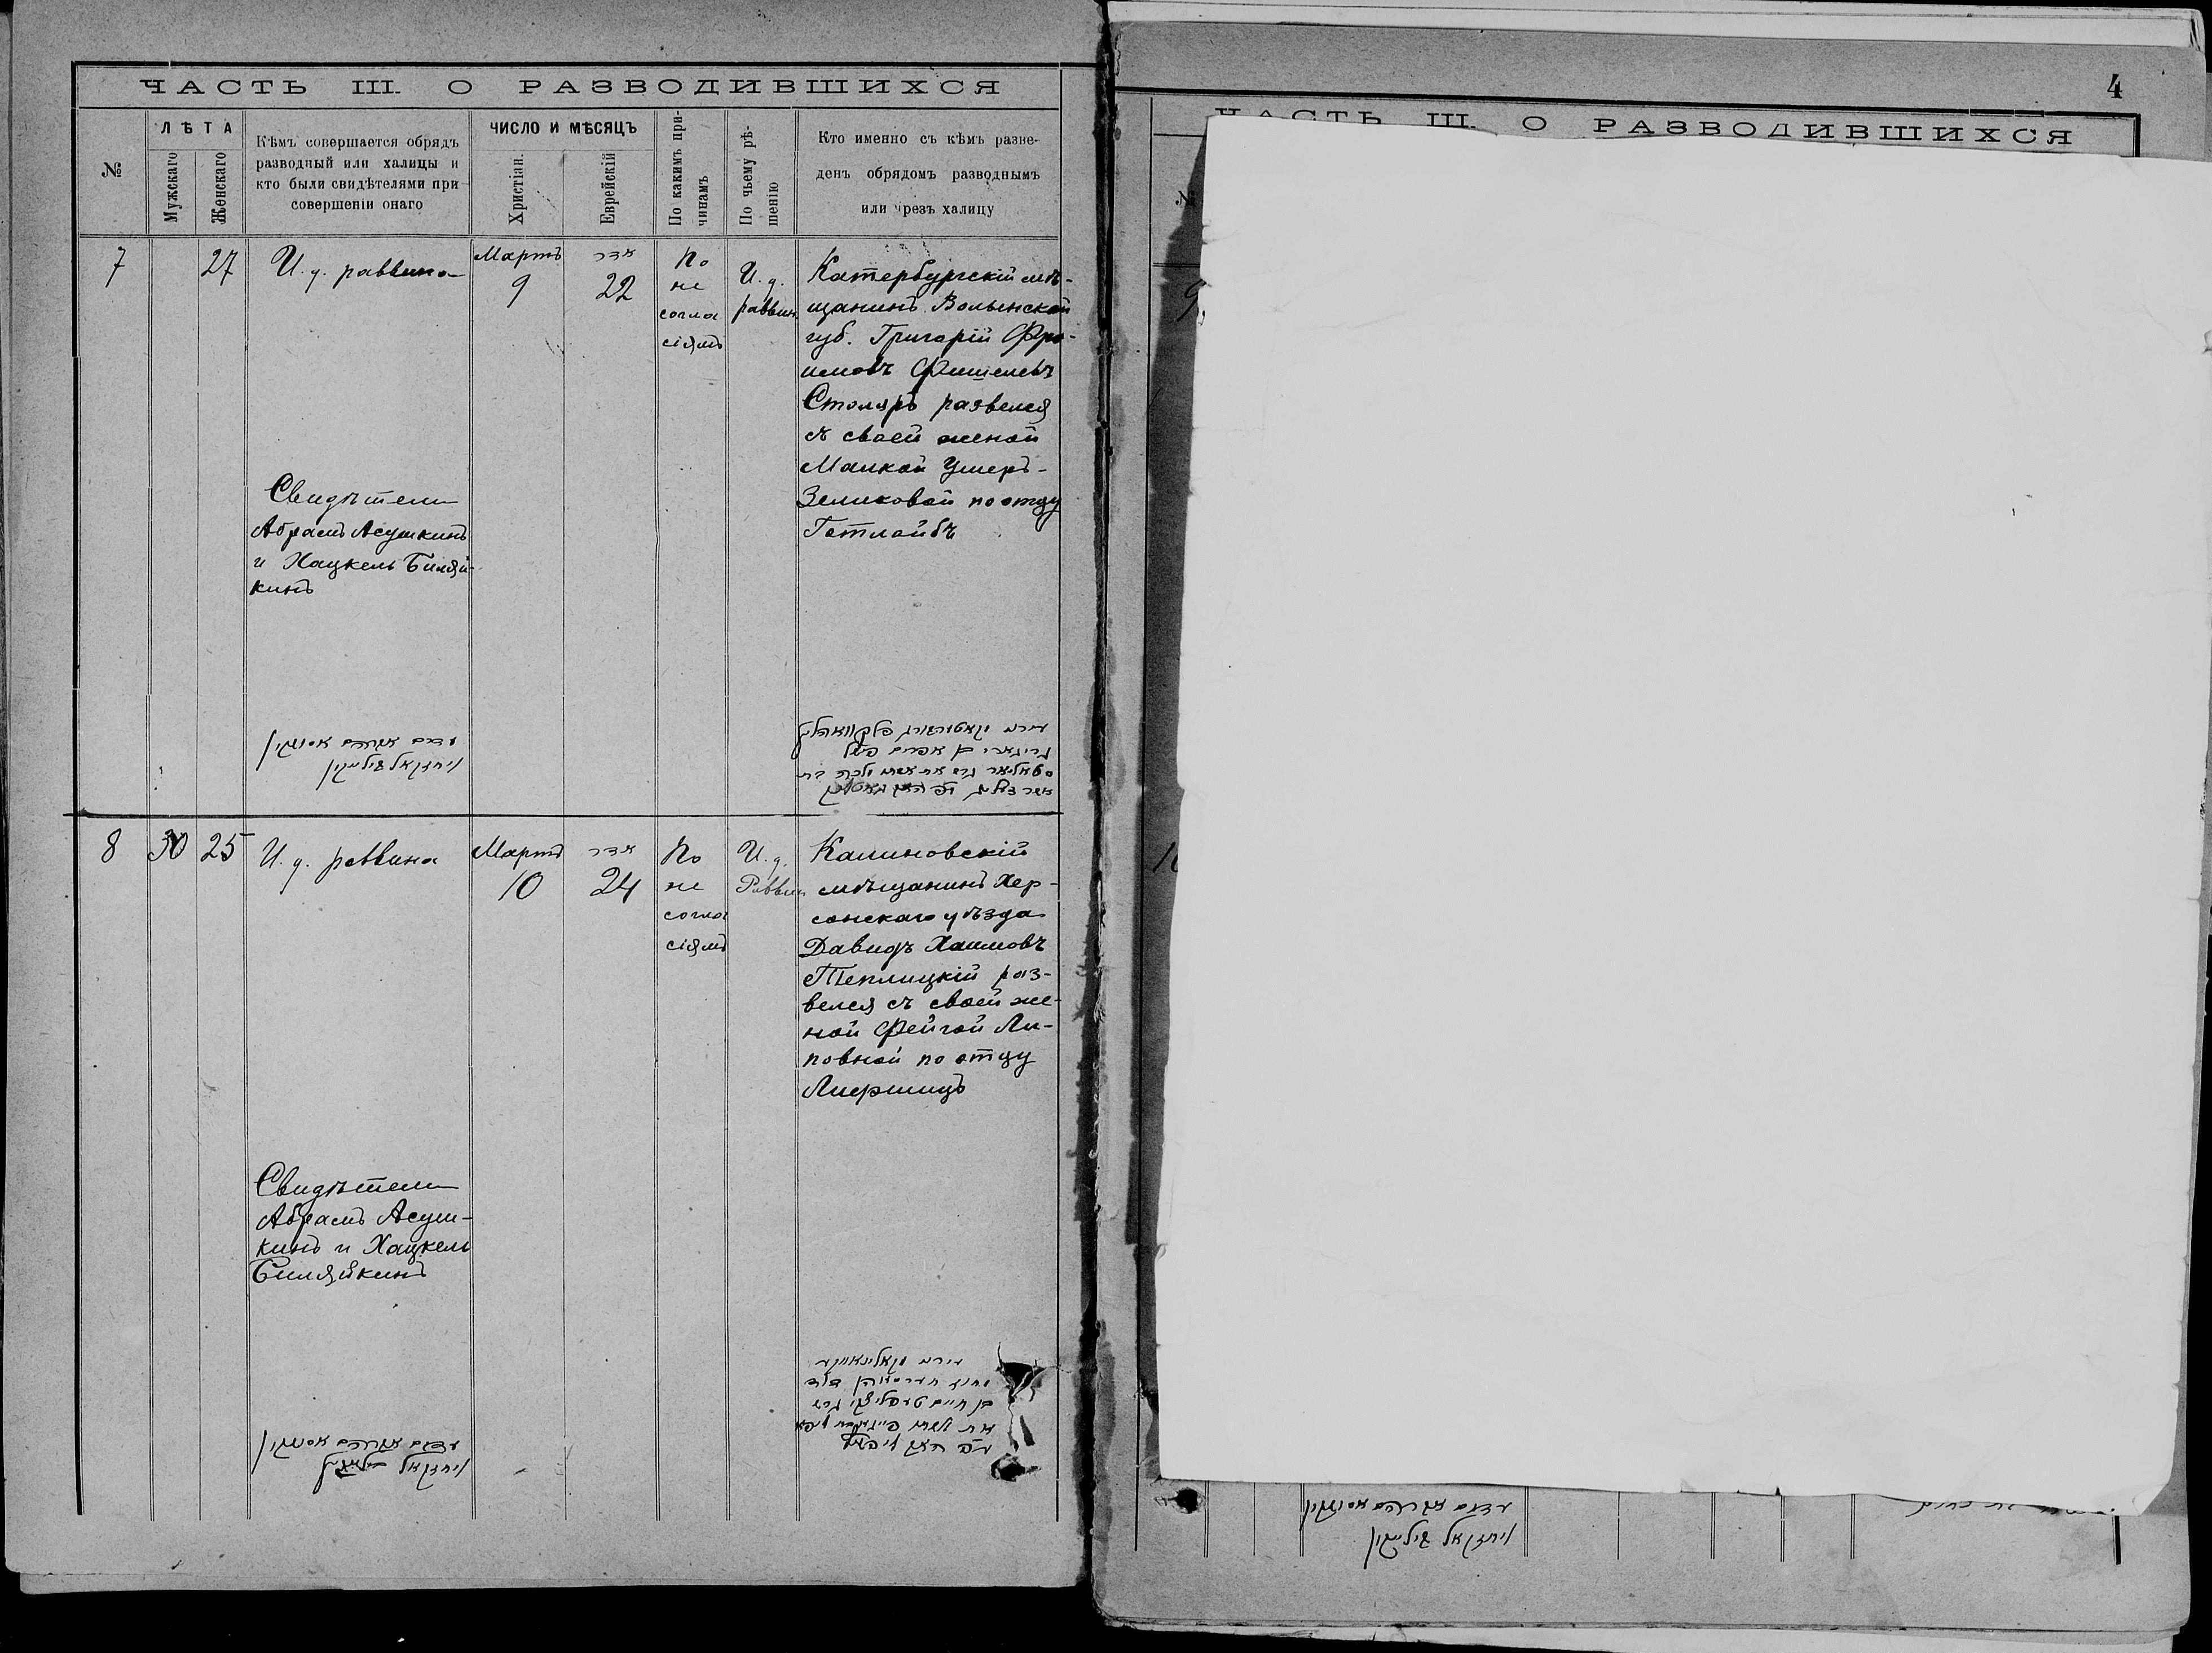 ЧАСТЬ III. О РАЗВОДИВШИХСЯ
№
ЛѢТА
Мужскаго
Женскаго
Кѣмъ совершается обрядъ
разводный или халицы и
кто были свидѣтелями при
совершеніи онаго
ЧИСЛО И МѢСЯЦЪ
Христіан.
Еврейскій
По какимъ при-
чинамъ
По чьему рѣ-
шенію
Кто именно съ кѣмъ разве-
денъ обрядомъ разводнымъ
или чрезъ халицу
7
27
И. д. раввина
Свидѣтели
Абрамъ Асушкинъ
и Хацкель Биляй-
кинъ
עדים אברהם אסושקין
ויחזקאל בילייקין
Мартъ
9
אדר
22
По
не
согла
сіямъ
И. д.
раввин.
Катербургскій мѣ-
щанинъ Волынской
губ. Григорій Фро-
имовъ Фишелевъ
Столяръ развелся
съ своей женой
Малкой Ушеръ-
Зеликовой по отцу
Готлойбъ
8
30
25
И. д. раввина
Свидѣтели
Абрамъ Асуш-
кинъ и Хацкель
Биляйкинъ
עדים אברהם אסושקין
ויחזקאל
Мартъ
10
אדר
24
По
не
согла
сіямъ
И. д.
Раввин
Калиновскій
мѣщанинъ Хер-
сонскаго уѣзда
Давидъ Хаимовъ
Теплицкій раз-
велся съ своей же-
ной Фейгой Ли-
повной по отцу
Лифшицъ
4
ЧАСТЬ III. О РАЗВОДИВШИХСЯ
№
9
עדים אברהם אסושקין
ויחזקאל בילייקין